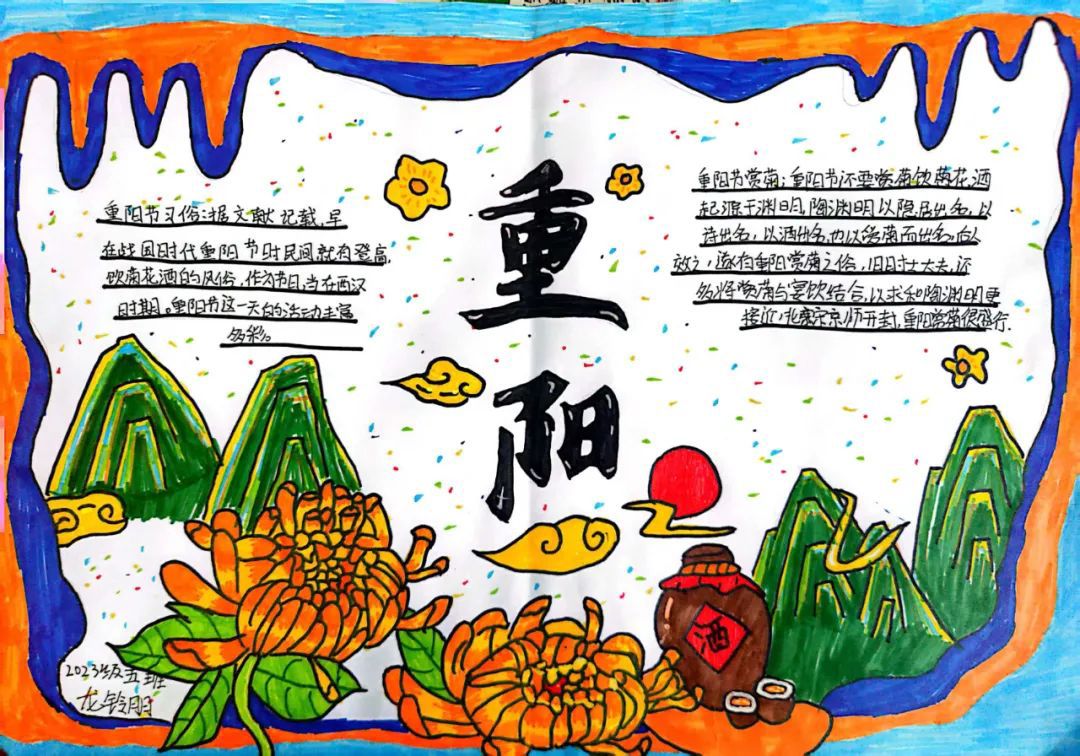 重阳
重阳节习俗:据文献记载,早
在战国时代重阳节时民间就有登高,
饮菊花酒的风俗,作为节日,当在西汉
时期。重阳节这一天的活动丰富
多彩。
重阳节赏菊:重阳节还要赏菊饮菊花酒
起源于渊明,陶渊明以隐居出名,以
诗出名,以酒出名,也以爱菊而出名。后人
效之,遂有重阳赏菊之俗,旧时士大夫,还
多将赏菊与宴饮结合,以求和陶渊明更
接近,北宋京师开封,重阳赏菊很盛行.
酒
2023级五班
龙铃